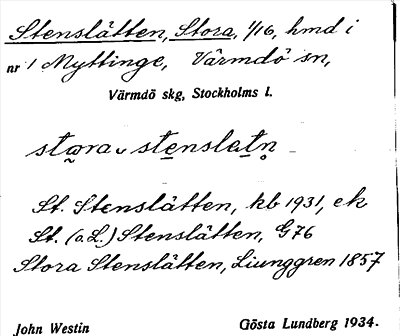 Stenslätten, Stora, 1/16, hmd i
nr 1 Myttinge, Värmdö sn,
Värmdö skg, Stockholms l.
stωra stenslet̥n̥
St. Stenslätten, kb 1931, ek
St. (o. L.) Stenslätten, G 76
Stora Stenslätten, Liunggren 1857
John Westin
Gösta Lundberg 1934.